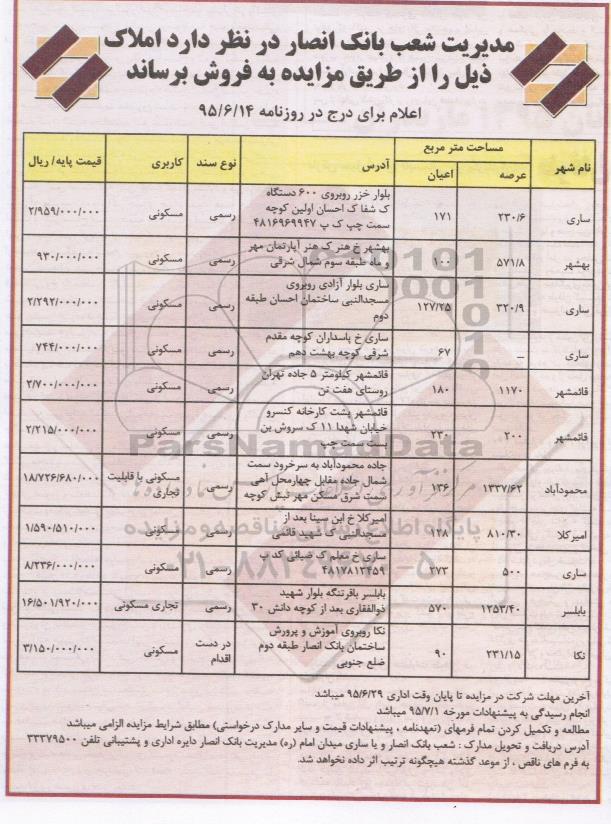 مدیریت شعب بانک انصار در نظر دارد املاک
ذیل را از طریق مزایده به فروش برساند
اعلام برای درج در روزنامه ۹۵/۶/۱۴
نام شهر مساحت متر مربع آدرس نوع سند کاربری قیمت پایه/ ریال
عرصه اعیان
ساری ۲۳۰/۶ ۱۷۱ بلوار خزر روبروی ۶۰۰ دستگاه
ک شفا ک احسان اولین کوچه
سمت چپ ک پ ۴۸۱۶۹۶۹۹۴۷ رسمی مسکونی ۲/۹۵۹/۰۰۰/۰۰۰
بهشهر ۵۷۱/۸ ۱۰۰ بهشهر خ هنر ک هنر آپارتمان مهر
و ماه طبقه سوم شمال شرقی رسمی مسکونی ۹۳۰/۰۰۰/۰۰۰
ساری ۳۲۰/۹ ۱۲۷/۲۵ ساری بلوار آزادی روبروی
مسجدالنبی ساختمان احسان طبقه
دوم رسمی مسکونی ۲/۲۹۲/۰۰۰/۰۰۰
ساری – ۶۷ ساری خ پاسداران کوچه مقدم
شرقی کوچه بهشت دهم رسمی مسکونی ۷۴۴/۰۰۰/۰۰۰
قائمشهر ۱۱۷۰ ۱۸۰ قائمشهر کیلومتر ۵ جاده تهران
روستای هفت تن رسمی مسکونی ۲/۷۰۰/۰۰۰/۰۰۰
قائمشهر ۲۰۰ ۲۳۰ قائمشهر پشت کارخانه کنسرو
خیابان شهدا ۱۱ ک سروش بن
بست سمت چپ رسمی مسکونی ۲/۲۱۵/۰۰۰/۰۰۰
محمودآباد ۱۳۳۷/۶۲ ۱۳۶ جاده محمودآباد به سرخرود سمت
شمال جاده مقابل چهارمحل آهی
سمت شرق مسکن مهر نبش کوچه رسمی مسکونی با قابلیت
تجاری ۱۸/۷۲۶/۶۸۰/۰۰۰
امیرکلا ۸۱۰/۳۰ ۱۲۸ امیرکلا خ ابن سینا بعد از
مسجدالنبی ک شهید قائمی رسمی مسکونی ۱/۵۹۰/۵۱۰/۰۰۰
ساری ۵۰۰ ۲۷۳ ساری خ معلم ک ضیائی کد پ
۴۸۱۷۸۱۳۴۵۹ رسمی مسکونی ۸/۲۳۶/۰۰۰/۰۰۰
بابلسر ۱۲۵۳/۴۰ ۵۷۰ بابلسر باقرتنگه بلوار شهید
ذوالفقاری بعد از کوچه دانش ۳۰ رسمی تجاری مسکونی ۱۶/۵۰۱/۹۲۰/۰۰۰
نکا ۲۳۱/۱۵ ۹۰ نکا روبروی آموزش و پرورش
ساختمان بانک انصار طبقه دوم
ضلع جنوبی در دست
اقدام مسکونی ۳/۱۵۰/۰۰۰/۰۰۰
آخرین مهلت شرکت در مزایده تا پایان وقت اداری ۹۵/۶/۲۹ میباشد
انجام رسیدگی به پیشنهادات مورخه ۹۵/۷/۱ میباشد
مطالعه و تکمیل کردن تمام فرمهای (تعهدنامه ، پیشنهادات قیمت و سایر مدارک درخواستی) مطابق شرایط مزایده الزامی میباشد
آدرس دریافت و تحویل مدارک : شعب بانک انصار و یا ساری میدان امام (ره) مدیریت بانک انصار دایره اداری و پشتیبانی تلفن ۳۳۳۷۹۵۰۰
به فرم های ناقص ، از موعد گذشته هیچگونه ترتیب اثر داده نخواهد شد.
ParsNamadData
پایگاه اطلاع رسانی مناقصه و مزایده